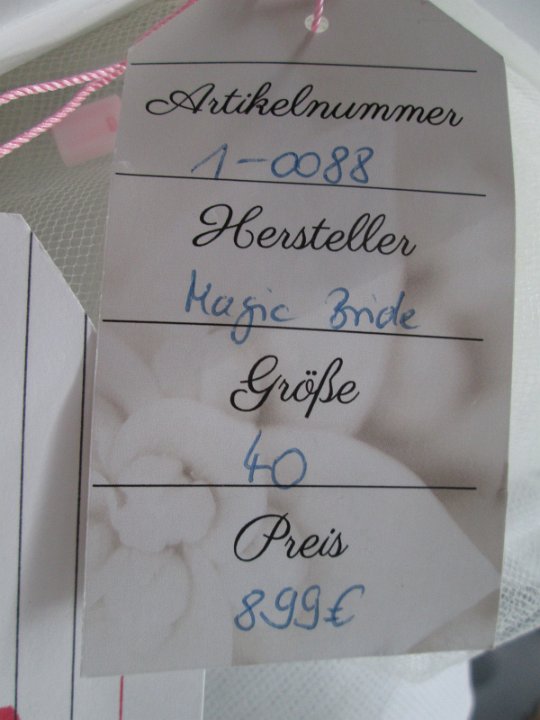 Artikelnummer
1-0088
Hersteller
Magic Bride
Größe
40
Preis
899€